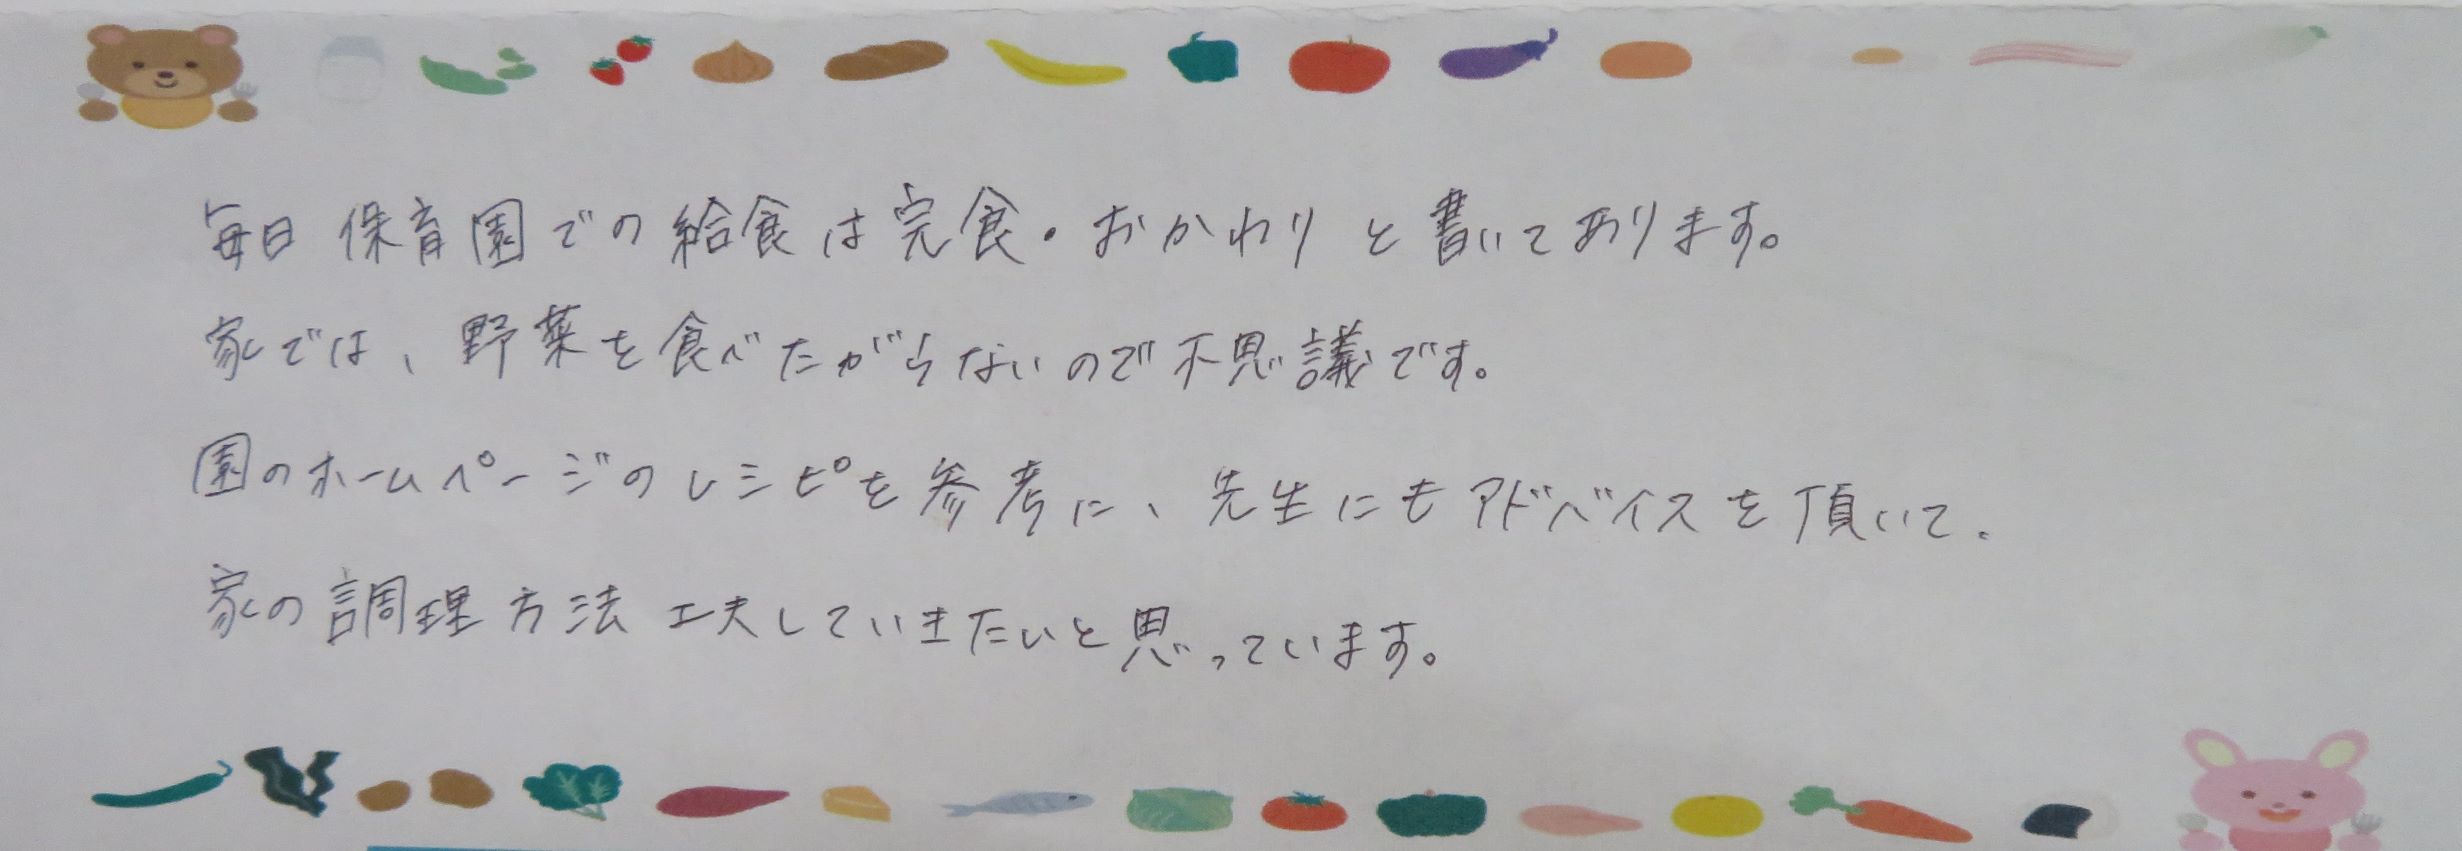 毎日保育園での給食は完食・おかわりと書いてあります。
家では、野菜を食べたがらないので不思議です。
園のホームページのレシピを参考に、先生にもアドバイスを頂いて、
家の調理方法工夫していきたいと思っています。